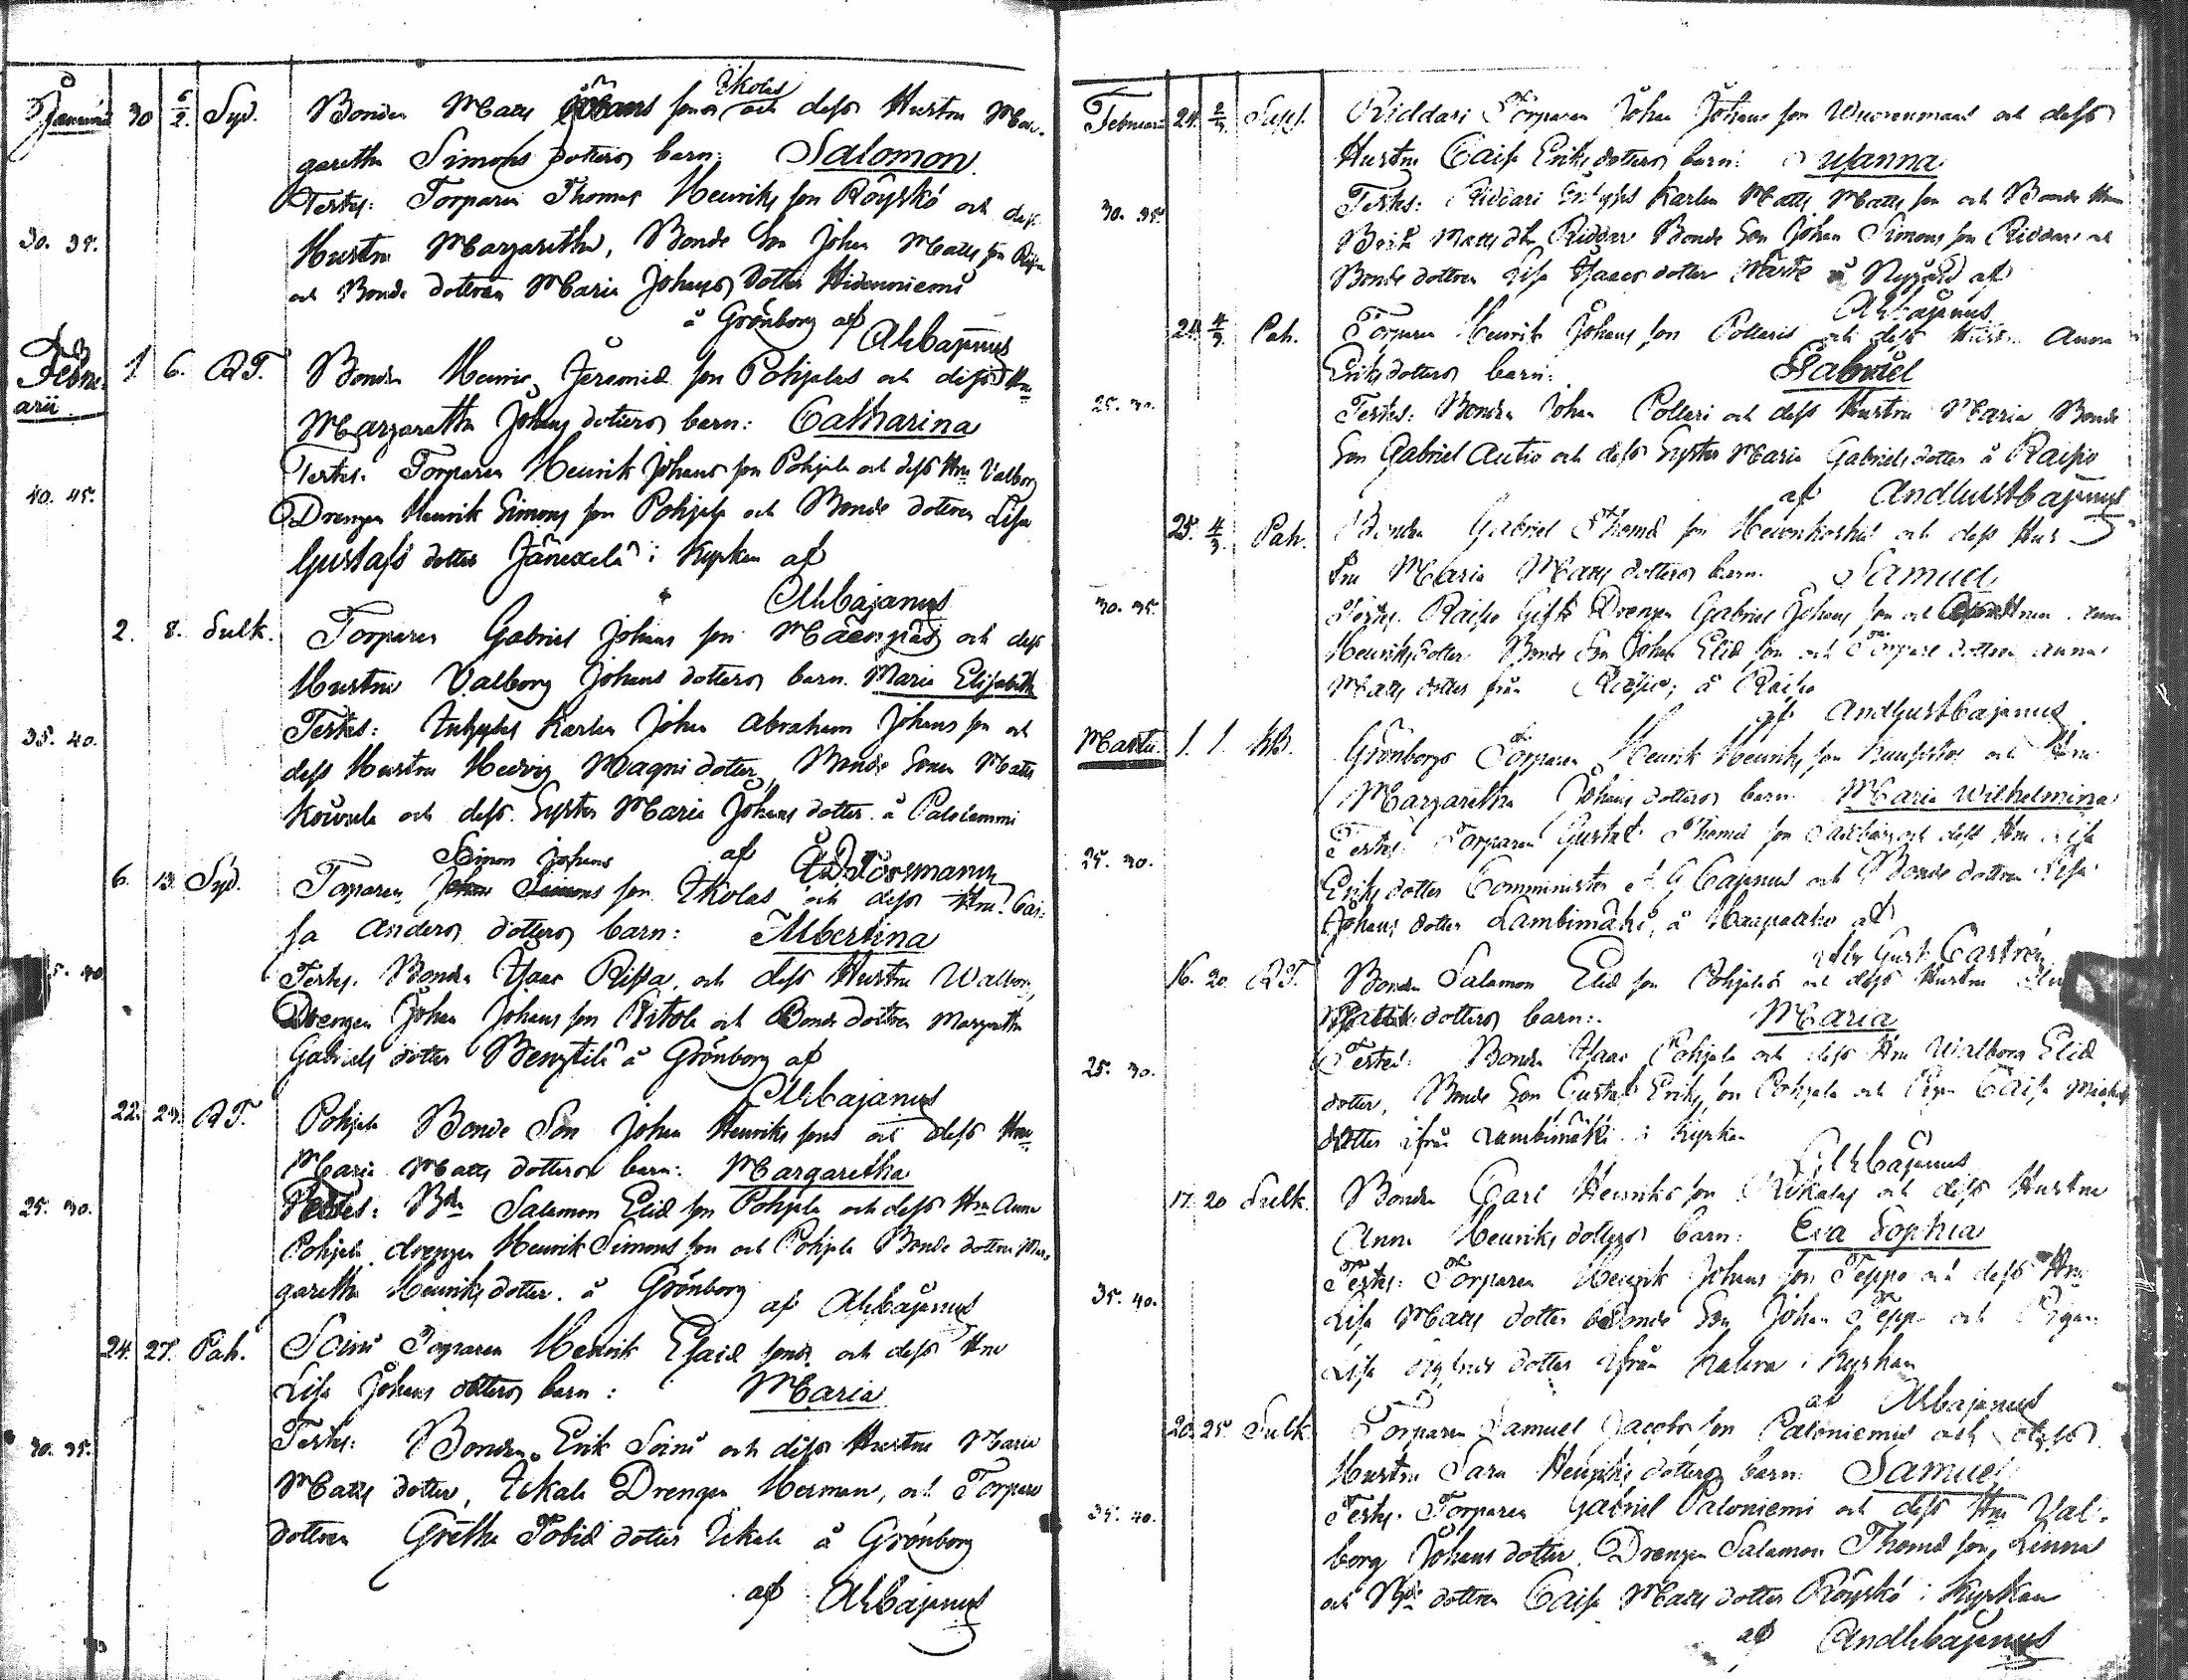 Januarii 30 6/2. Syd. Bonden Matts Johans sons Ikolas och dess Hustru Mar-
garetha Simons dotters barn: Salomon.
Testes: Torparen Thomas Henriks son Röyskö och dess
30. 35. Hustru Margaretha, Bonde Son Johan Matts son
och Bonde dottren Maria Johans dotter Hidenniemi
å Grönborg af AHCajanus
Februarii 1 6. RT. Bonden Henric Jeremiæ son Pohjalas och dess Hu
Margaretha Johans dotters barn: Catharina
Testes: Torparen Henrik Johans son Pohjala och dess Hru Valborg
40. 45. Drengen Henrik Simons son Pohjala och Bonde dottren Lisa
Gustafs dotter Jänexelä i Kyrkan af
AHCajanus
2. 8. Sulk. Torparen Gabriel Johans son och dess
Hustru Valborg Johans dotters barn. Maria Elisabeth
Testes: Inhyses Karlen Johan Abraham Johans son och
35. 40. dess Hustru Hedvig Magni dotter, Bonde Sonen Matts
och dess Syster Maria Johans dotter å
Simon Johans af
6. 13. Syd. Torparen Johan Simons son Ikolas och dess Hru Cai-
sa Anders dotters barn: Albertina
Testes. Bonden Isaac Rissa, och dess Hustru Walborg,
Drengen Johan Johans son och Bonde dottren Margretha
Gabriels dotter å Grönborg af
AHCajanus
22. 24. RT. Pohjala Bonde Son Johan Henriks sons och dess Hru
Maria Matts dotters barn: Margaretha
Testes: Bdn Salomon Eliæ son Pohjala och dess Hru Anna
25. 30. Pohjala drengen Henrik Simons son och Pohjala Bonde dottren Mar-
garetha Henriks dotter. å Grönborg af AHCajanus
24. 27. Pah. Soini Torparen Henrik Esaiæ sons och dess Hru
Lisa Johans dotters barn: Maria
Testes: Bonden Erik Soini och dess Hustru Maria
30. 35. Matts dotter, Ukala Drengen Herman, och Torpare
dottren Gretha Tobiæ dotter Ukala å Grönborg
af AHCajanus
Februarii 21. Riddari Torparen Johan Johans son Wuorenmaas och dess
Hustru Caisa Eriks dotters barn: Susanna
30. 35. Testes: Riddari Inhyses Karlen Matts Matts son och Bonde
Matts dtr Riddari Bonde Son Johan Simons son Riddari och
Bonde dottren Lisa Isaacs dotter å Nygård af
AHCajanus
24. 4/3. Pah. Torparen Henrik Johans son Pollaris och dess Hustru Anna
Eriks dotters barn: Gabriel
25. 30. Testes: Bonden Johan Pollari och dess Hustru Maria Bonde
Son Gabriel Autio och dess Syster Maria Gabriels dotter å Raisio
af AndHustCajanus
25. 4/3. Pah. Bonden Gabriel Thomæ son och dess Hus-
tru Maria Matts dotters barn. Samuel
30. 35. Testes. Raisio Gifte Drengen Gabriel Johans son och Hru
Henriks dotter Bonde Son Johan Eliæ son och Torpare dottren Anna
Matts dotter från Raisio; å Raisio
af AndHustCajanus
Martii. 1. 1. Grönborgs Torparen Henrik Henriks son och Hru
Margaretha Johans dotters barn Maria Wilhelmina
25. 30. Testes. Torparen Gustaf Thomæ son och dess Hru Lisa
Eriks dotter Comminister Cajanus och Bonde dottren Lisa
Johans dotter Lambimäki, å af
Gust. Castrén
16. 20. RT. Bonden Salomon Eliæ son Pohjalas och dess Hustru
dotters barn: Maria
25. 30. Testes: Bonden Isaac Pohjala och dess Hru Walborg Eliæ
dotter, Bonde Son Gustaf Eriks son Pohjala och Pigan Caisa
dotter ifrån Lambimäki i Kyrkan
AHCajanus
17. 20 Sulk. Bonden Carl Henriks son och dess Hustru
Anna Henriks dotters barn: Eva Sophia
35. 40. Testes: Torparen Henrik Johans son Teppo och dess Hru
Lisa Matts dotter Bonde Son Johan Teppo och Pigan
Lisa dotter ifrån Kaleva i Kyrkan
af AHCajanus
20. 25. Sulk Torparen Samuel Jacobs son Paloniemis och dess
Hustru Sara Henriks dotters barn: Samuel
35. 40. Testes. Torparen Gabriel Paloniemi och dess Hru Val-
borg Johans dotter. Drengen Salomon Thomæ son, Linnas
och Bde dottren Caisa Matts dotter Röyskö i Kyrkan
af AndHCajanus